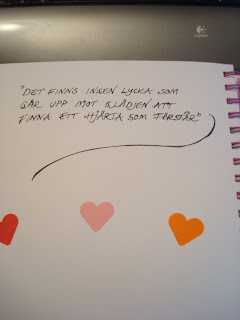 Logitech
"DET FINNS INGEN LYCKA SOM
GÅR UPP MOT GLÄDJEN ATT
FINNA ETT HJÄRTA SOM FÖRSTÅR"